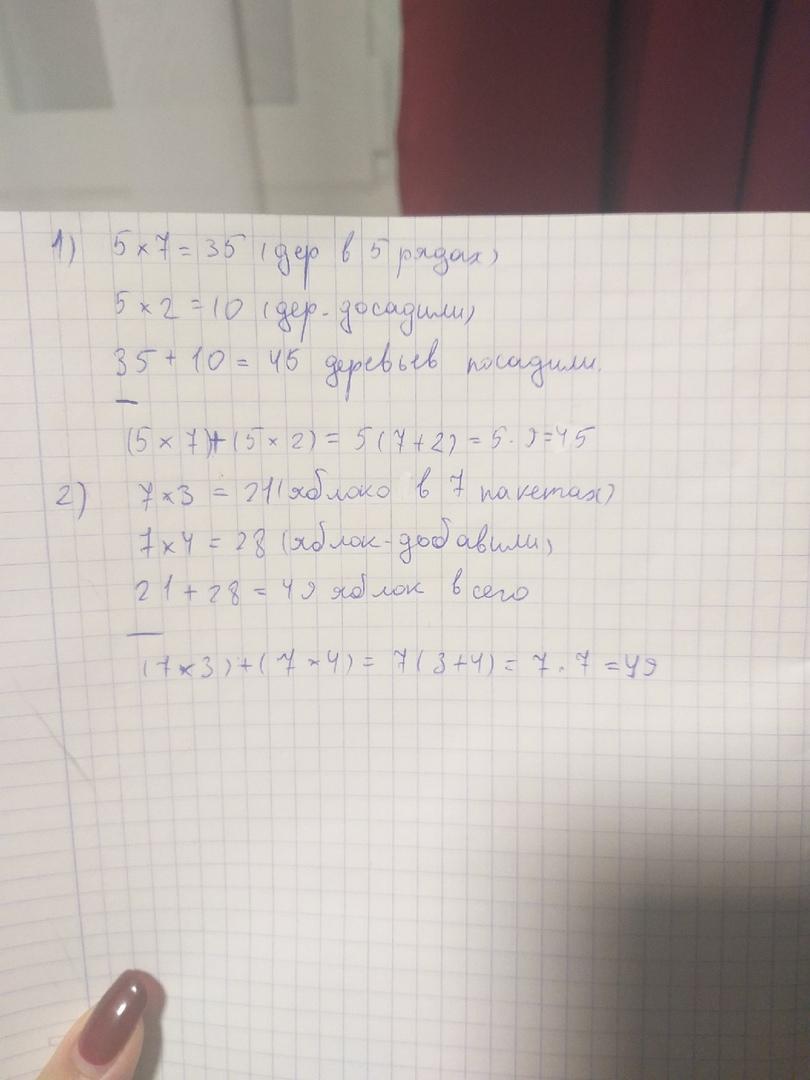 1) 5 × 7 = 35 (дер в 5 рядах)
5 × 2 = 10 (дер. досадили)
35 + 10 = 45 деревьев посадили.
(5 × 7) + (5 × 2) = 5(7+2) = 5 · 9 = 45
2) 7 × 3 = 21 (яблоко в 7 пакетах)
7 × 4 = 28 (яблок-добавили)
21 + 28 = 49 яблок всего
(7 × 3) + (7 × 4) = 7(3+4) = 7 · 7 = 49